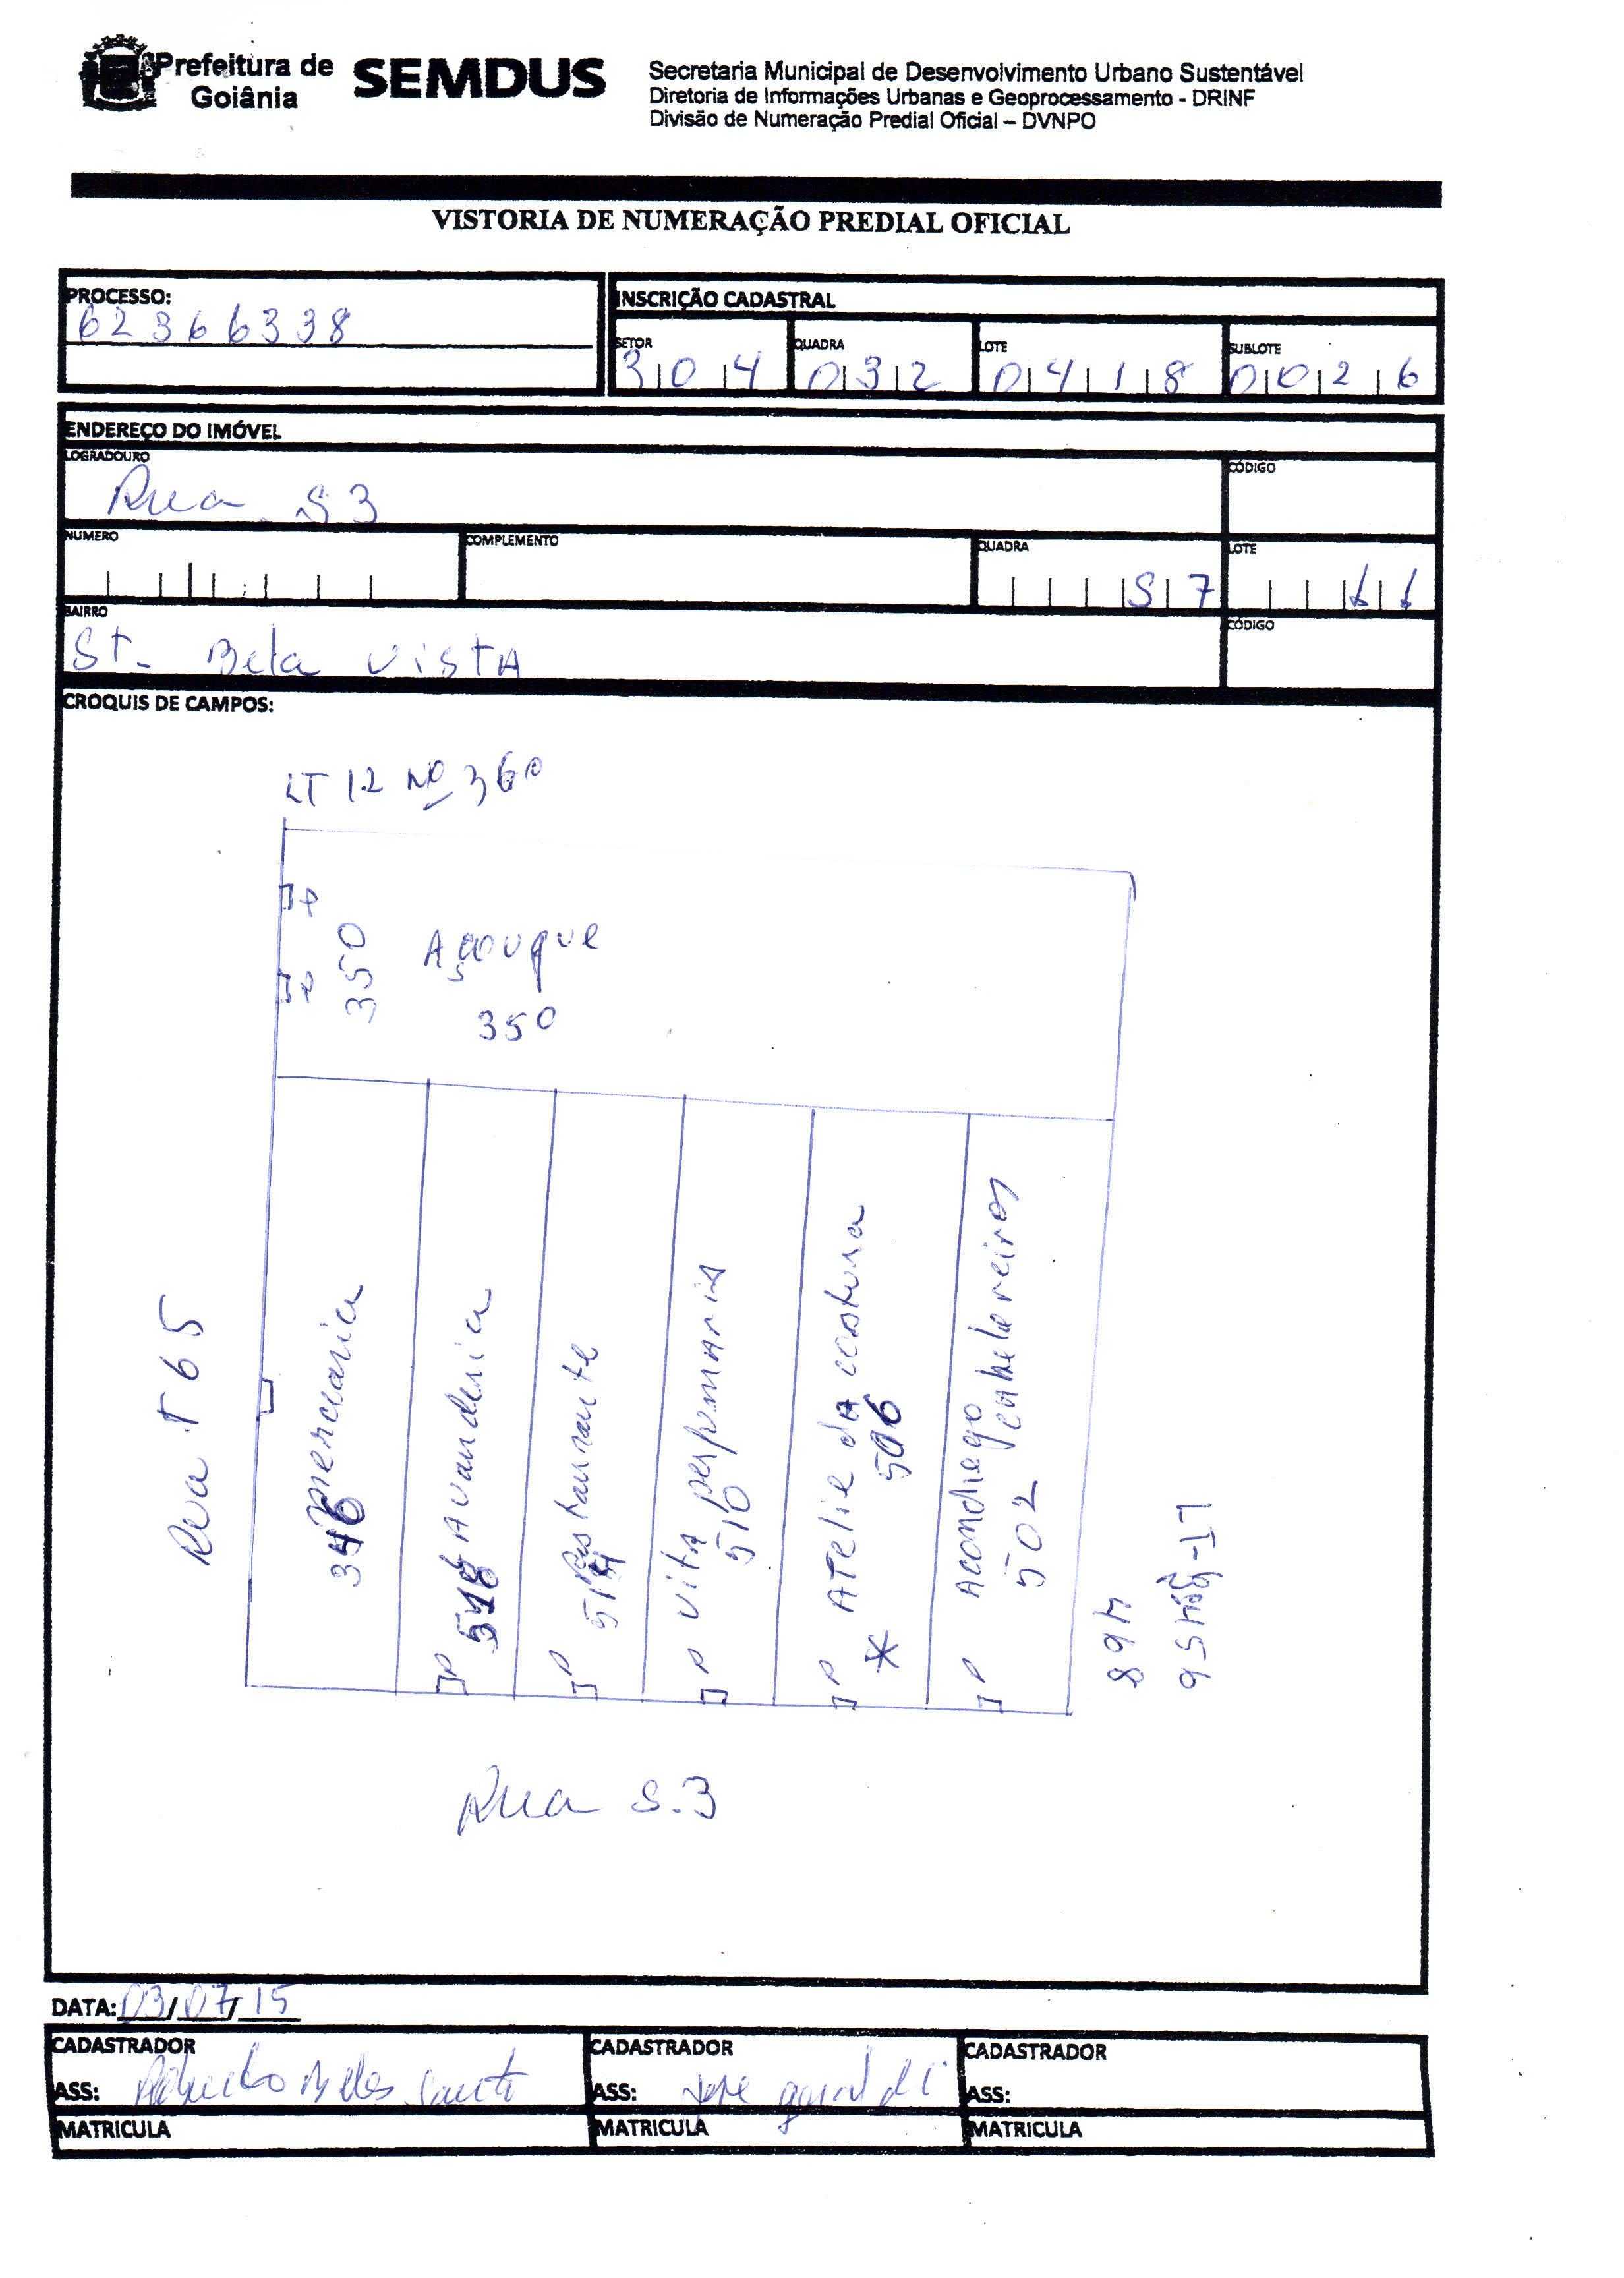 Prefeitura de
Goiânia
SEMDUS
Secretaria Municipal de Desenvolvimento Urbano Sustentável
Diretoria de Informações Urbanas e Geoprocessamento - DRINF
Divisão de Numeração Predial Oficial – DVNPO
VISTORIA DE NUMERAÇÃO PREDIAL OFICIAL
PROCESSO:
62366338
INSCRIÇÃO CADASTRAL
SETOR
304
QUADRA
032
LOTE
0418
SUBLOTE
0026
ENDEREÇO DO IMÓVEL
LOGRADOURO
Rua S3
CÓDIGO
NUMERO
COMPLEMENTO
QUADRA
S7
LOTE
11
BAIRRO
ST- Bela VISTA
CÓDIGO
CROQUIS DE CAMPOS:
LT 12 Nº 360
P
P
350
Açougue
350
Rua T65
mercearia
346
Lavanderia
518
P
Restaurante
514
P
Vita perfumaria
510
P
Atelie da costura
506
*
P
Aconchego
cabeleireiros
502
P
468
Rua S.3
DATA: 03/07/15
CADASTRADOR
ASS:
MATRICULA
CADASTRADOR
ASS: Jose
MATRICULA
CADASTRADOR
ASS:
MATRICULA